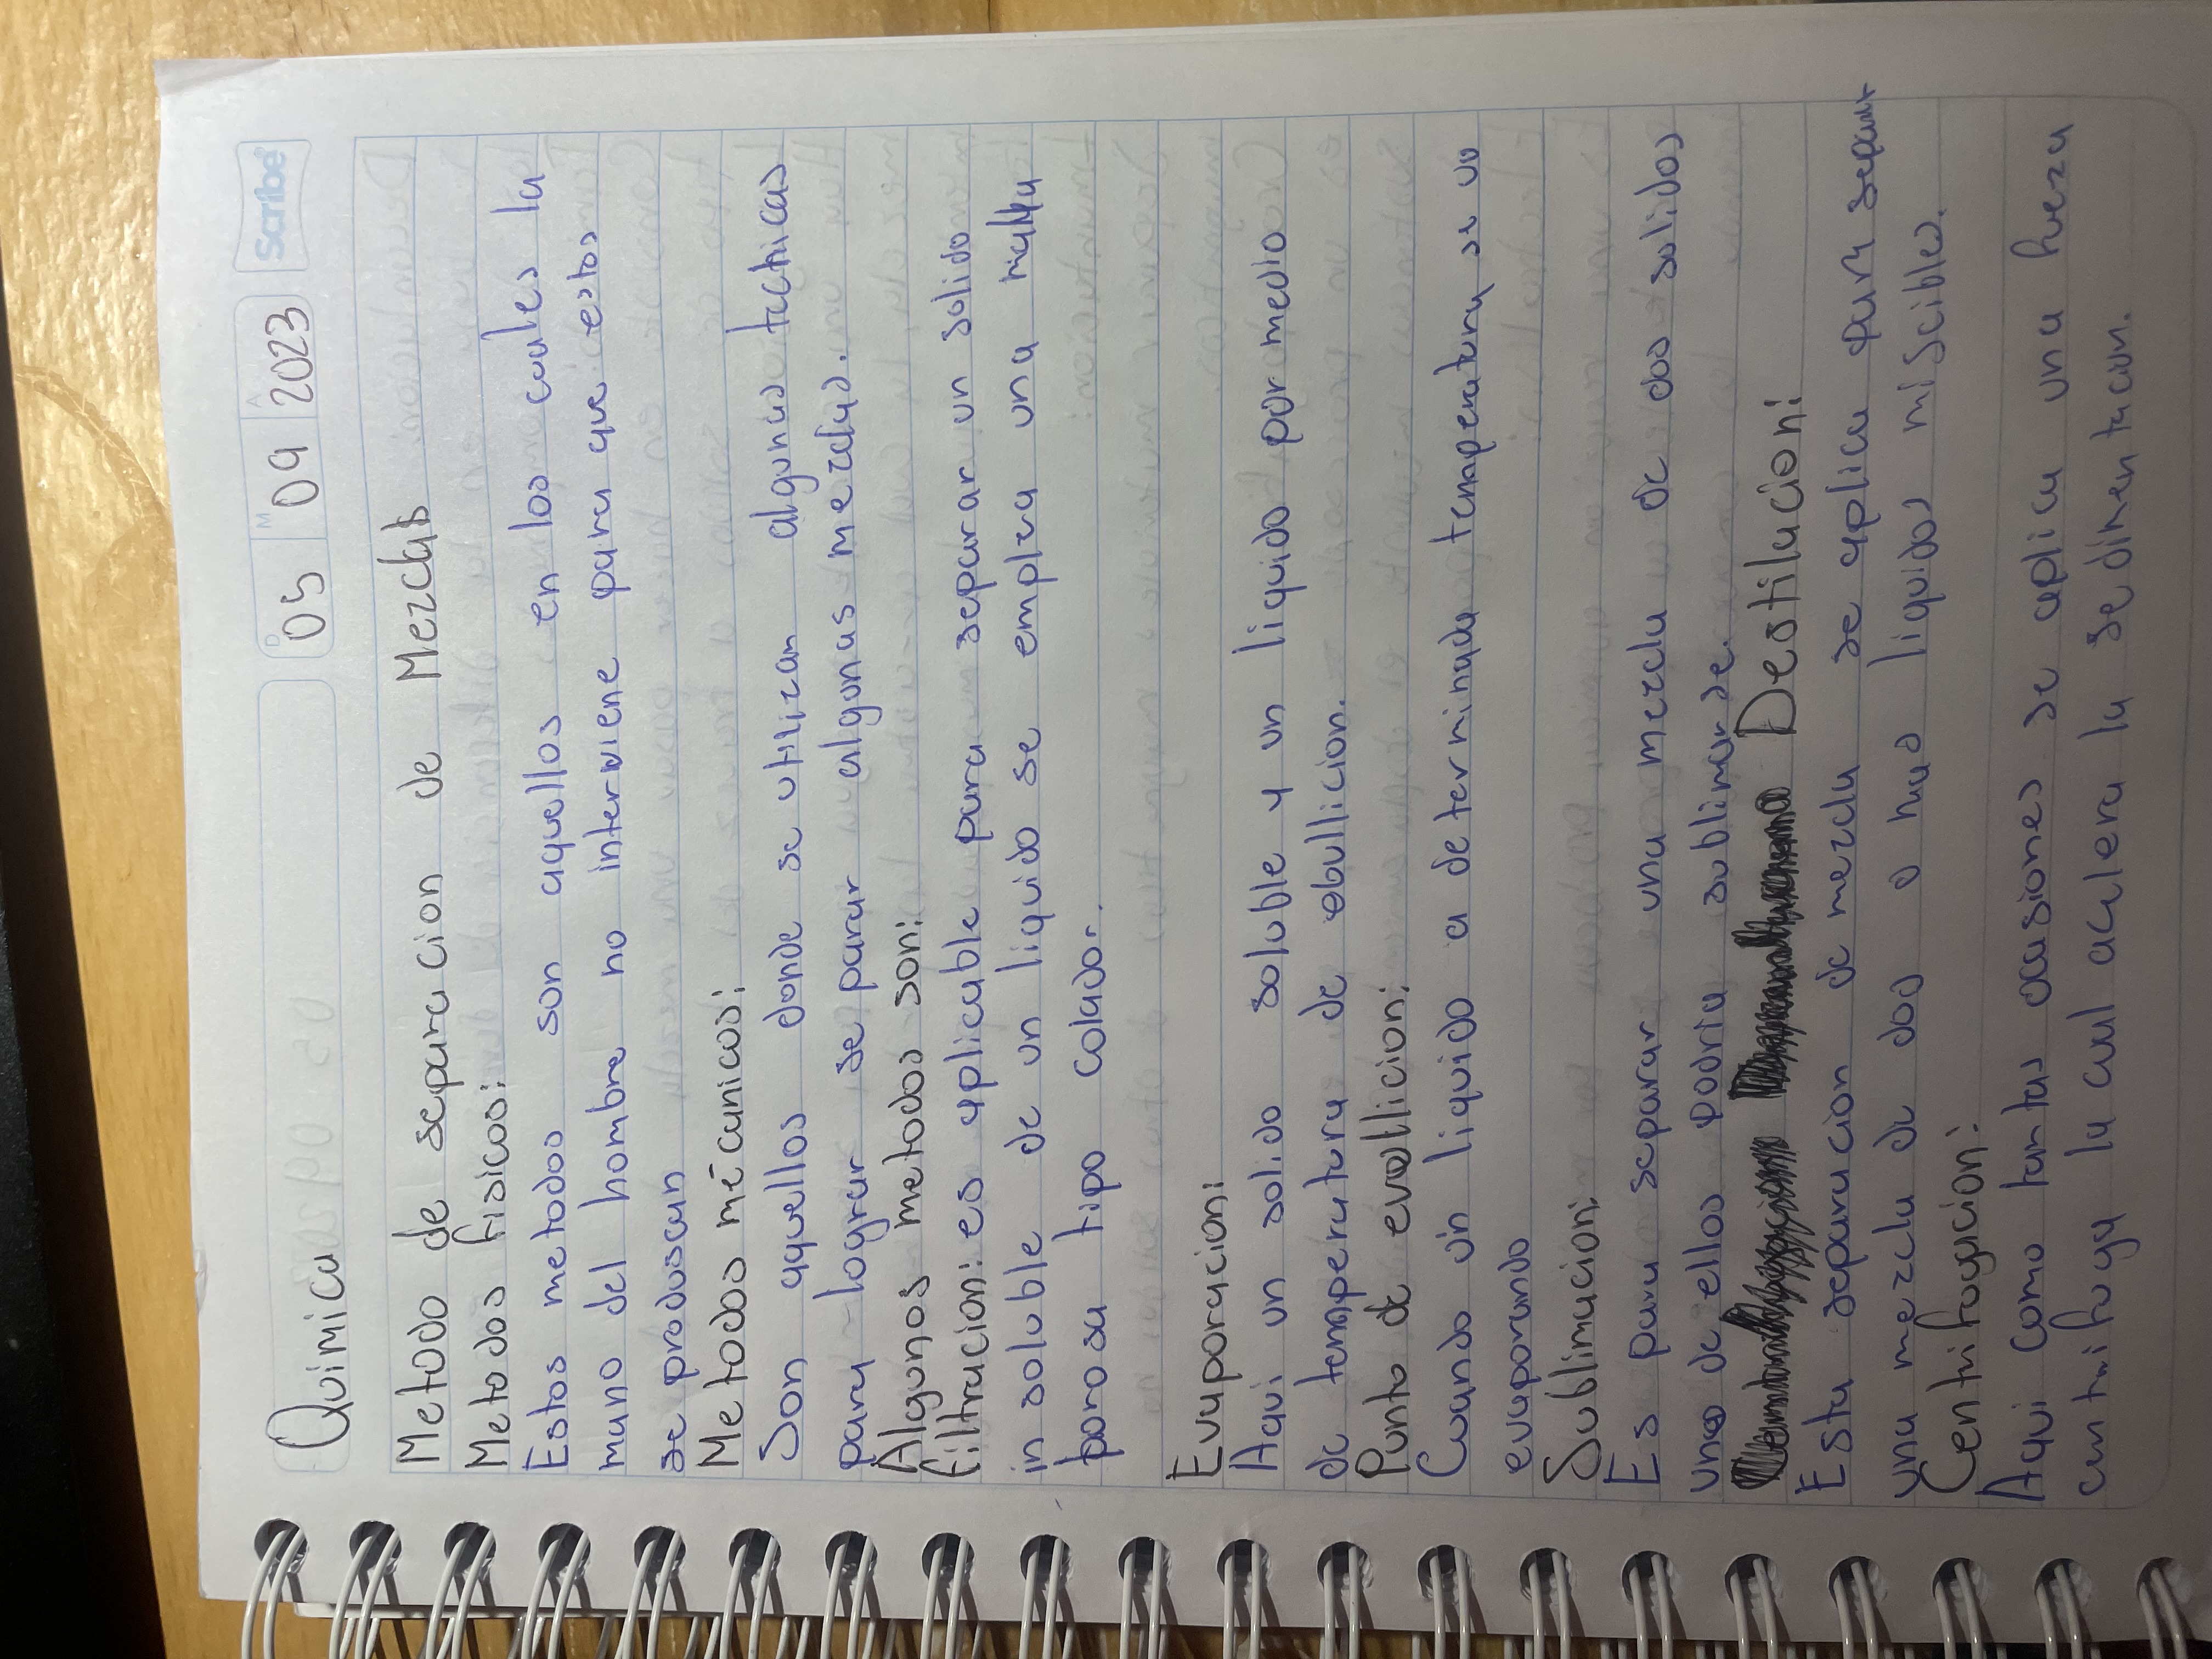 Quimica
D M A
05 09 2023
Scribe
Metodo de separacion de Mezclas
Metodos fisicos:
Estos metodos son aquellos en los cuales la
mano del hombre no interviene para que estos
se produscan
Metodos mécanicos:
Son aquellos donde se utilizan algunas tachicas
para lograr separar algunas mezclas.
Algunos metodos son:
filtracion: es aplicable para separar un solido
in soluble de un liquido se emplea una malla
porosa tipo colador.
Evaporacion:
Aqui un solido soluble y un liquido por medio
de temperatura de ebullicion.
Punto de evallicion:
Cuando un liquido a determinada temperatura se va
evaporando
Sublimacion:
Es para separar una mezcla de dos solidos
uno de ellos podria sublimarse.
Destilacion:
Esta separacion de mezcla se aplica para separar
una mezcla de dos o mas liquidos miscibles.
Centrifugacion:
Aqui como tantas ocasiones se aplica una fuerza
centrifuga la cual aclera la sedimentacion.